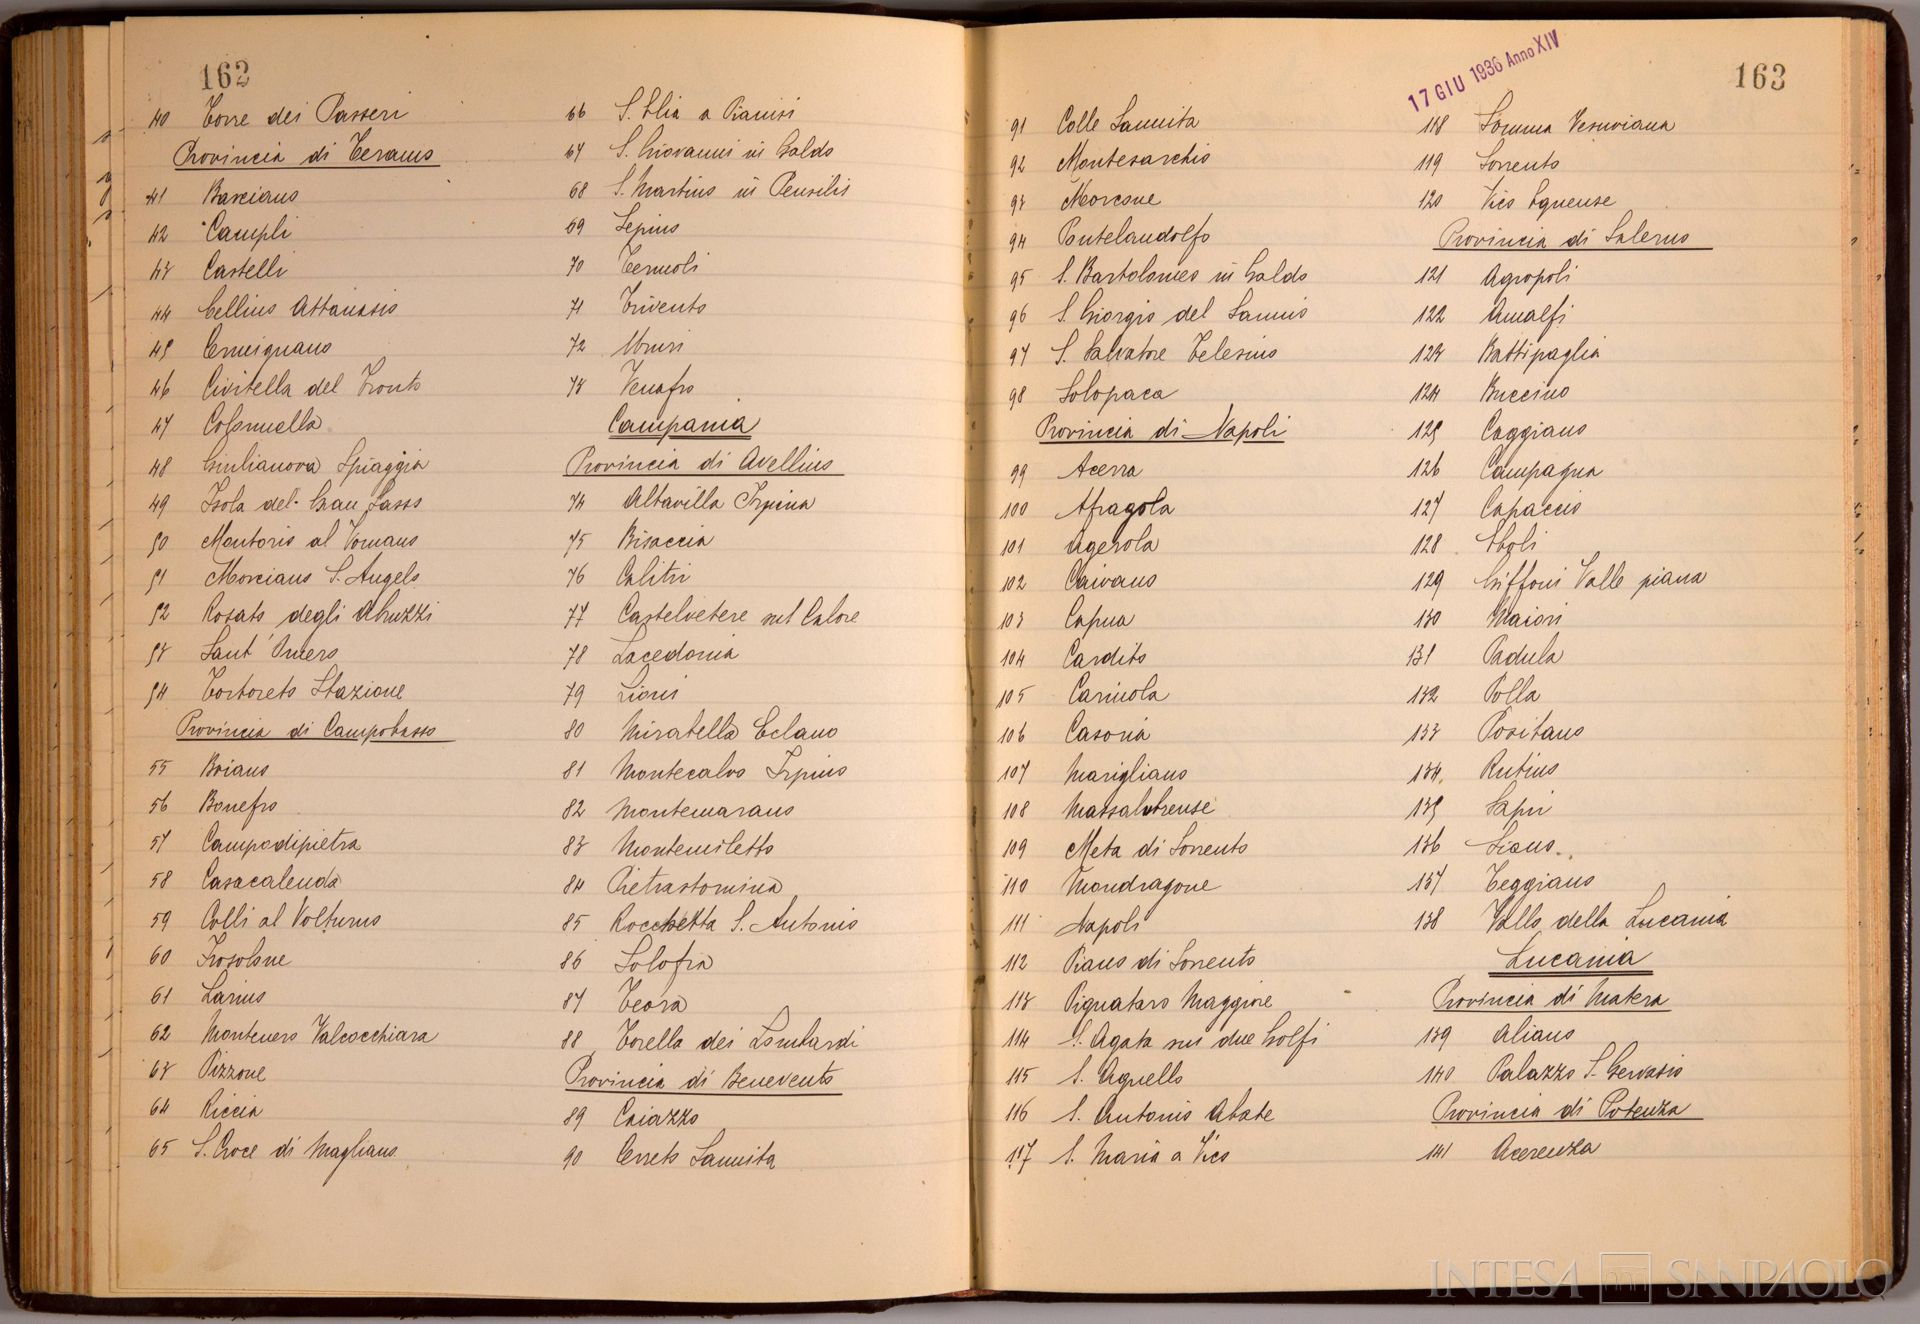 162
40 Torre dei Passeri
Provincia di Teramo
41 Basciano
42 Campli
43 Castelli
44 Cellino Attanasio
45 Cermignano
46 Civitella del Tronto
47 Colonnella
48 Giulianova Spiaggia
49 Isola del Gran Sasso
50 Montorio al Vomano
51 Morciano S. Angelo
52 Rosato degli Abruzzi
53 Sant'Omero
54 Tortoreto Stazione
Provincia di Campobasso
55 Boiano
56 Bonefro
57 Campodipietra
58 Casacalenda
59 Colli al Volturno
60 Frosolone
61 Larino
62 Montenero Valcocchiara
63 Pizzone
64 Riccia
65 S. Croce di Magliano
66 S. Elia a Pianisi
67 S. Giovanni in Galdo
68 S. Martino in Pensilis
69 Sepino
70 Termoli
71 Trivento
72 Ururi
73 Venafro
Campania
Provincia di Avellino
74 Altavilla Irpina
75 Bisaccia
76 Calitri
77 Castelvetere sul Calore
78 Lacedonia
79 Lioni
80 Mirabella Eclano
81 Montecalvo Irpino
82 Montemarano
83 Montemiletto
84 Pietrastornina
85 Rocchetta S. Antonio
86 Solofra
87 Teora
88 Torella dei Lombardi
Provincia di Benevento
89 Caiazzo
90 Cerreto Sannita
17 GIU 1936 Anno XIV
163
91 Colle Sannita
92 Montesarchio
93 Morcone
94 Pontelandolfo
95 S. Bartolomeo in Galdo
96 S. Giorgio del Sannio
97 S. Salvatore Telesino
98 Solopaca
Provincia di Napoli
99 Acerra
100 Afragola
101 Agerola
102 Caivano
103 Capua
104 Cardito
105 Carinola
106 Casoria
107 Marigliano
108 Massalubrense
109 Meta di Sorrento
110 Mondragone
111 Napoli
112 Piano di Sorrento
113 Pignataro Maggiore
114 S. Agata sui due Golfi
115 S. Agnello
116 S. Antonio Abate
117 S. Maria a Vico
118 Somma Vesuviana
119 Sorrento
120 Vico Equense
Provincia di Salerno
121 Agropoli
122 Amalfi
123 Battipaglia
124 Buccino
125 Caggiano
126 Campagna
127 Capaccio
128 Eboli
129 Giffoni Valle piana
130 Maiori
131 Padula
132 Polla
133 Positano
134 Rutino
135 Sapri
136 Siano
137 Teggiano
138 Vallo della Lucania
Lucania
Provincia di Matera
139 Aliano
140 Palazzo S. Gervasio
Provincia di Potenza
141 Acerenza
INTESA SANPAOLO